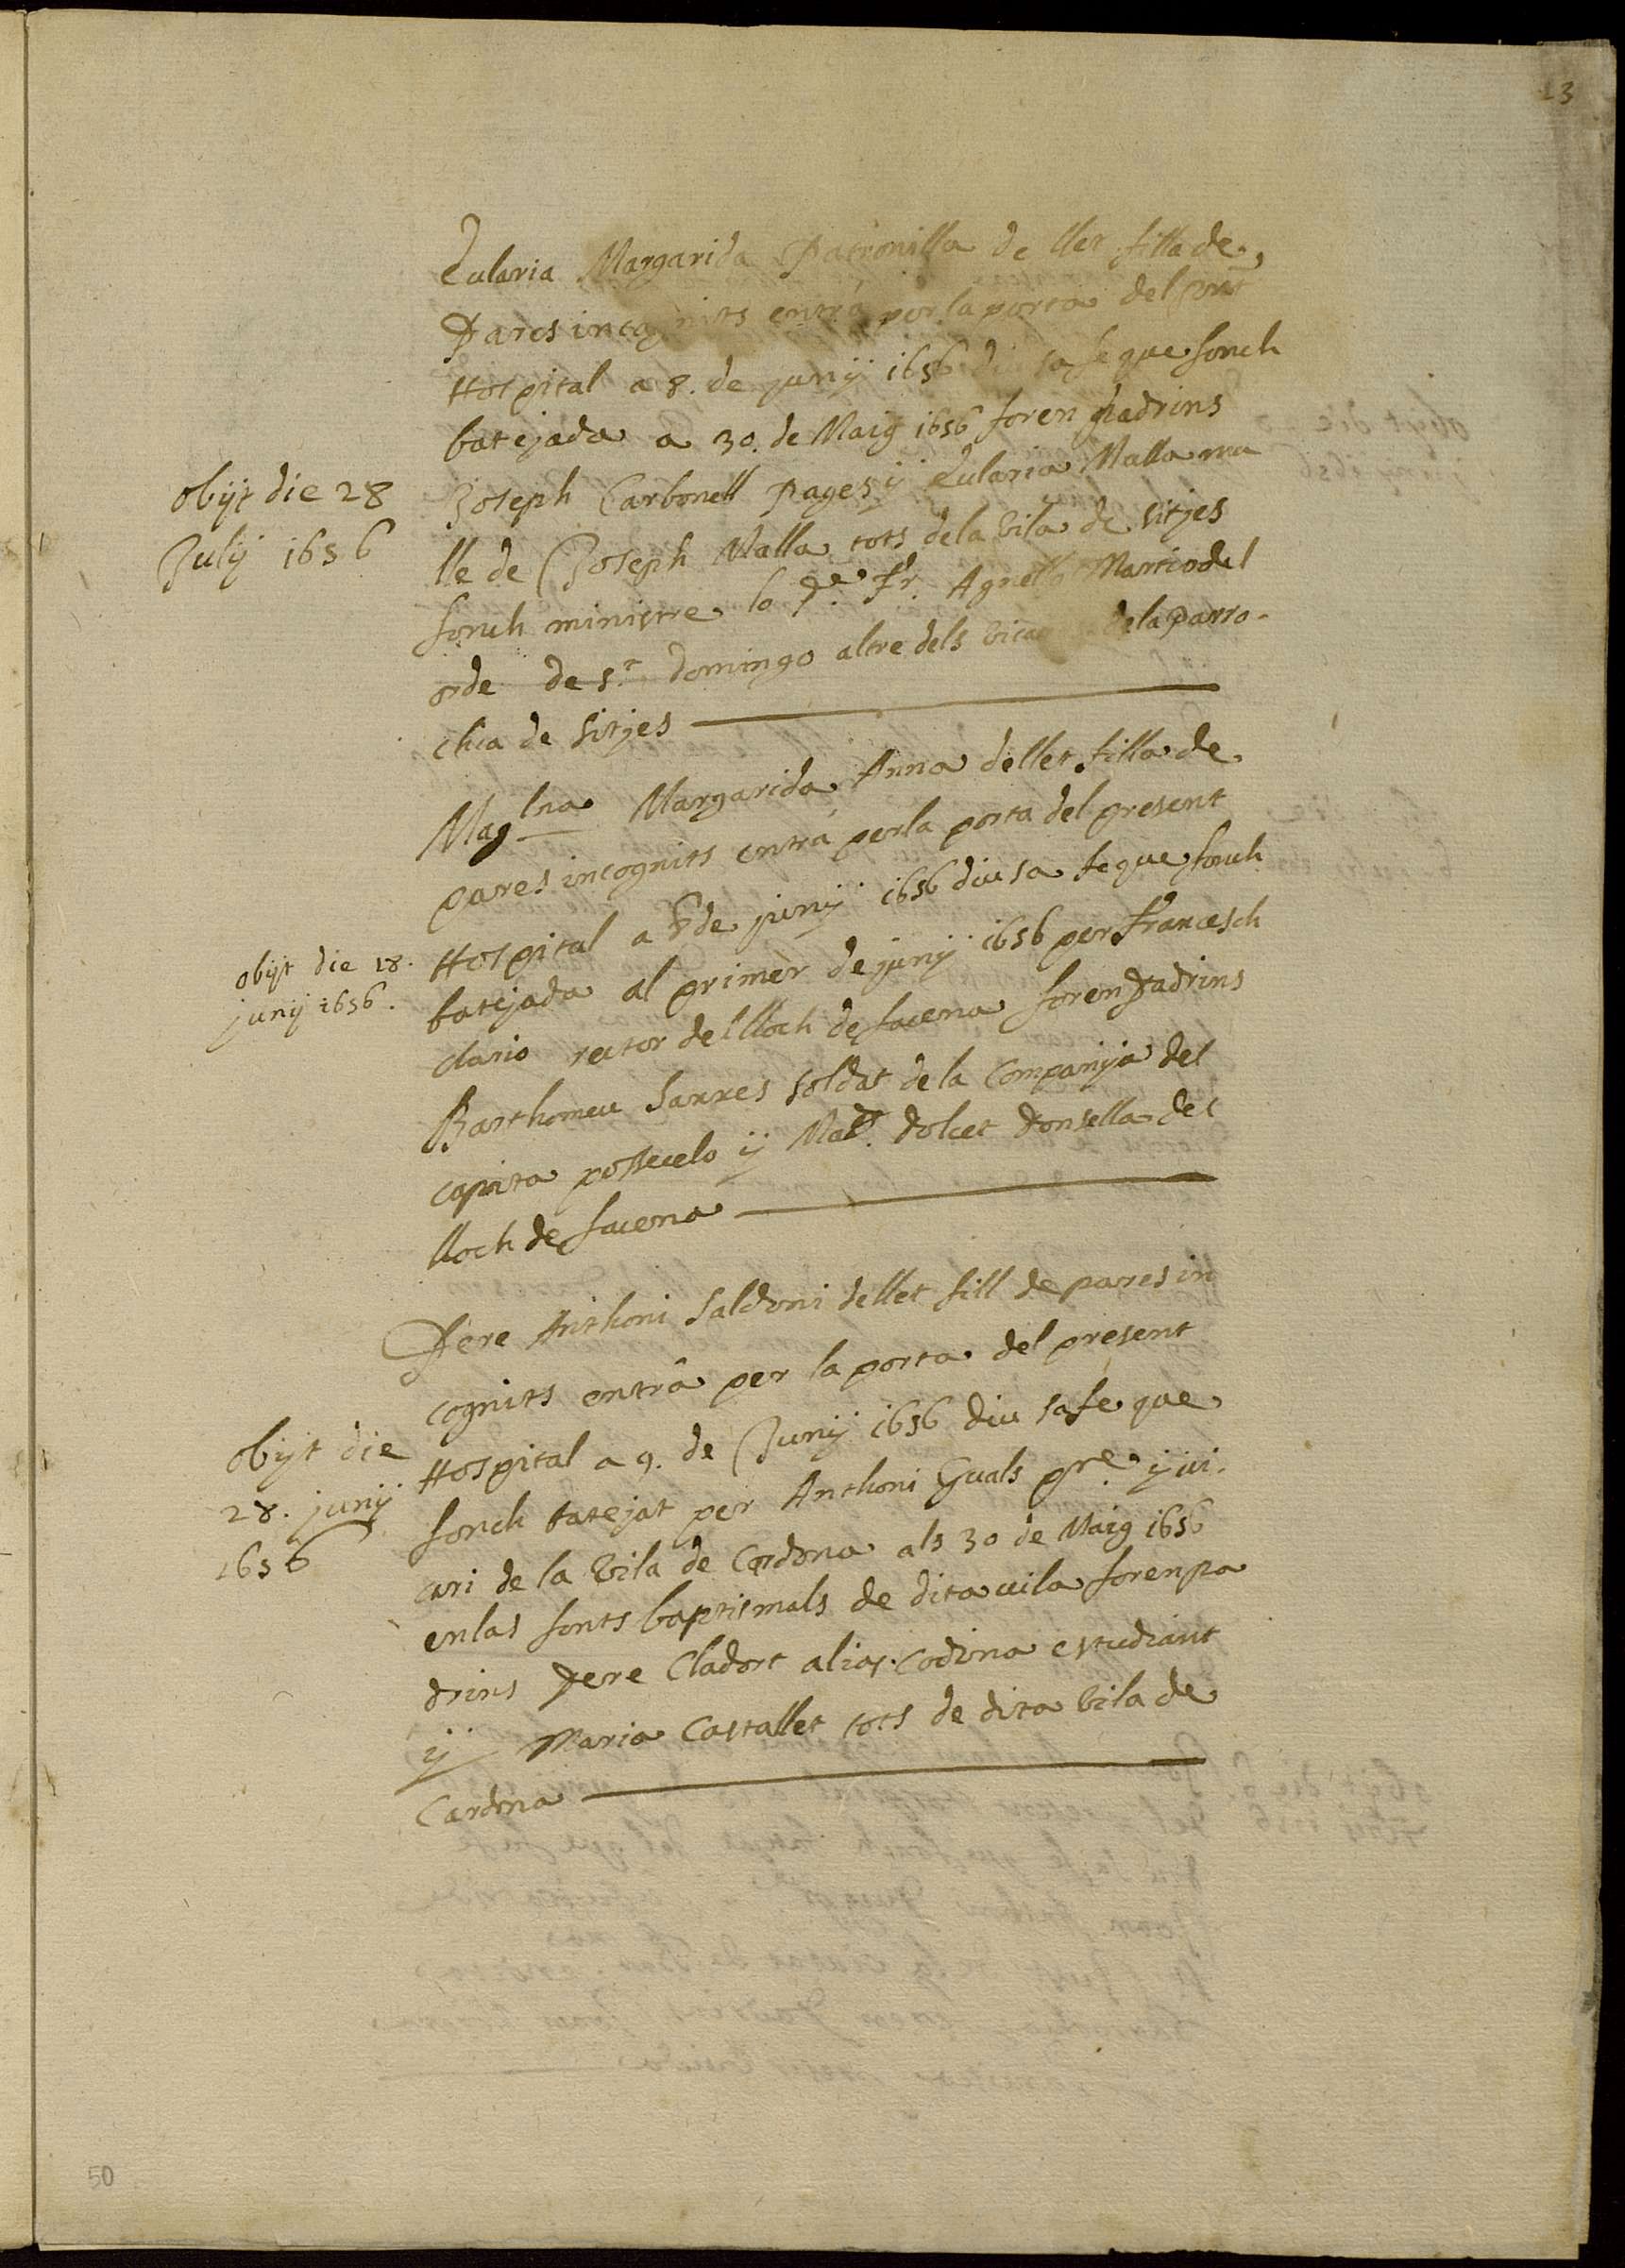 23
Eularia Margarida Patronilla de llet filla de
Pares incognits entrá per la porta del pnt
Hospital a 8. de juny 1656 diu sa fe que fonch
batejada a 30. de Maig 1656 foren padrins
obijt die 28
July 1656
Joseph Carbonell pages y Eularia Malla mu
lle de Joseph Malla tots dela vila de sitjes
fonch ministre lo Pe. fr. Agnello Martir del
orde de St. Domingo altre dels vicaris dela Parro-
chia de sitjes
Maglna Margarida Anna dellet filla de
pares incognits entrá perla porta del present
Hospital a 8 de juny 1656 diu sa fe que fonch
obijt die 18.
juny 1656.
batejada al primer de juny 1656 per Francesch
clario rector del lloch de facena foren Padrins
Barthomeu Sarres soldat de la Companyia del
capita possuelo y Mad. dolcet donsella del
lloch de facena
Pere Anthoni Saldoni dellet fill de pares in
cognits entrâ per la porta del present
Hospital a 9. de Juny 1656 diu sa fe que
obijt die
28. juny
1656
fonch batejat per Anthoni Guals pre. y vi-
cari de la vila de Cardona als 30 de Maig 1656
enlas fonts baptismals de dita vila foren pa
drins Pere Cladort alias Codina estudiant
y Maria Castallet tots de dita vila de
Cardona
50